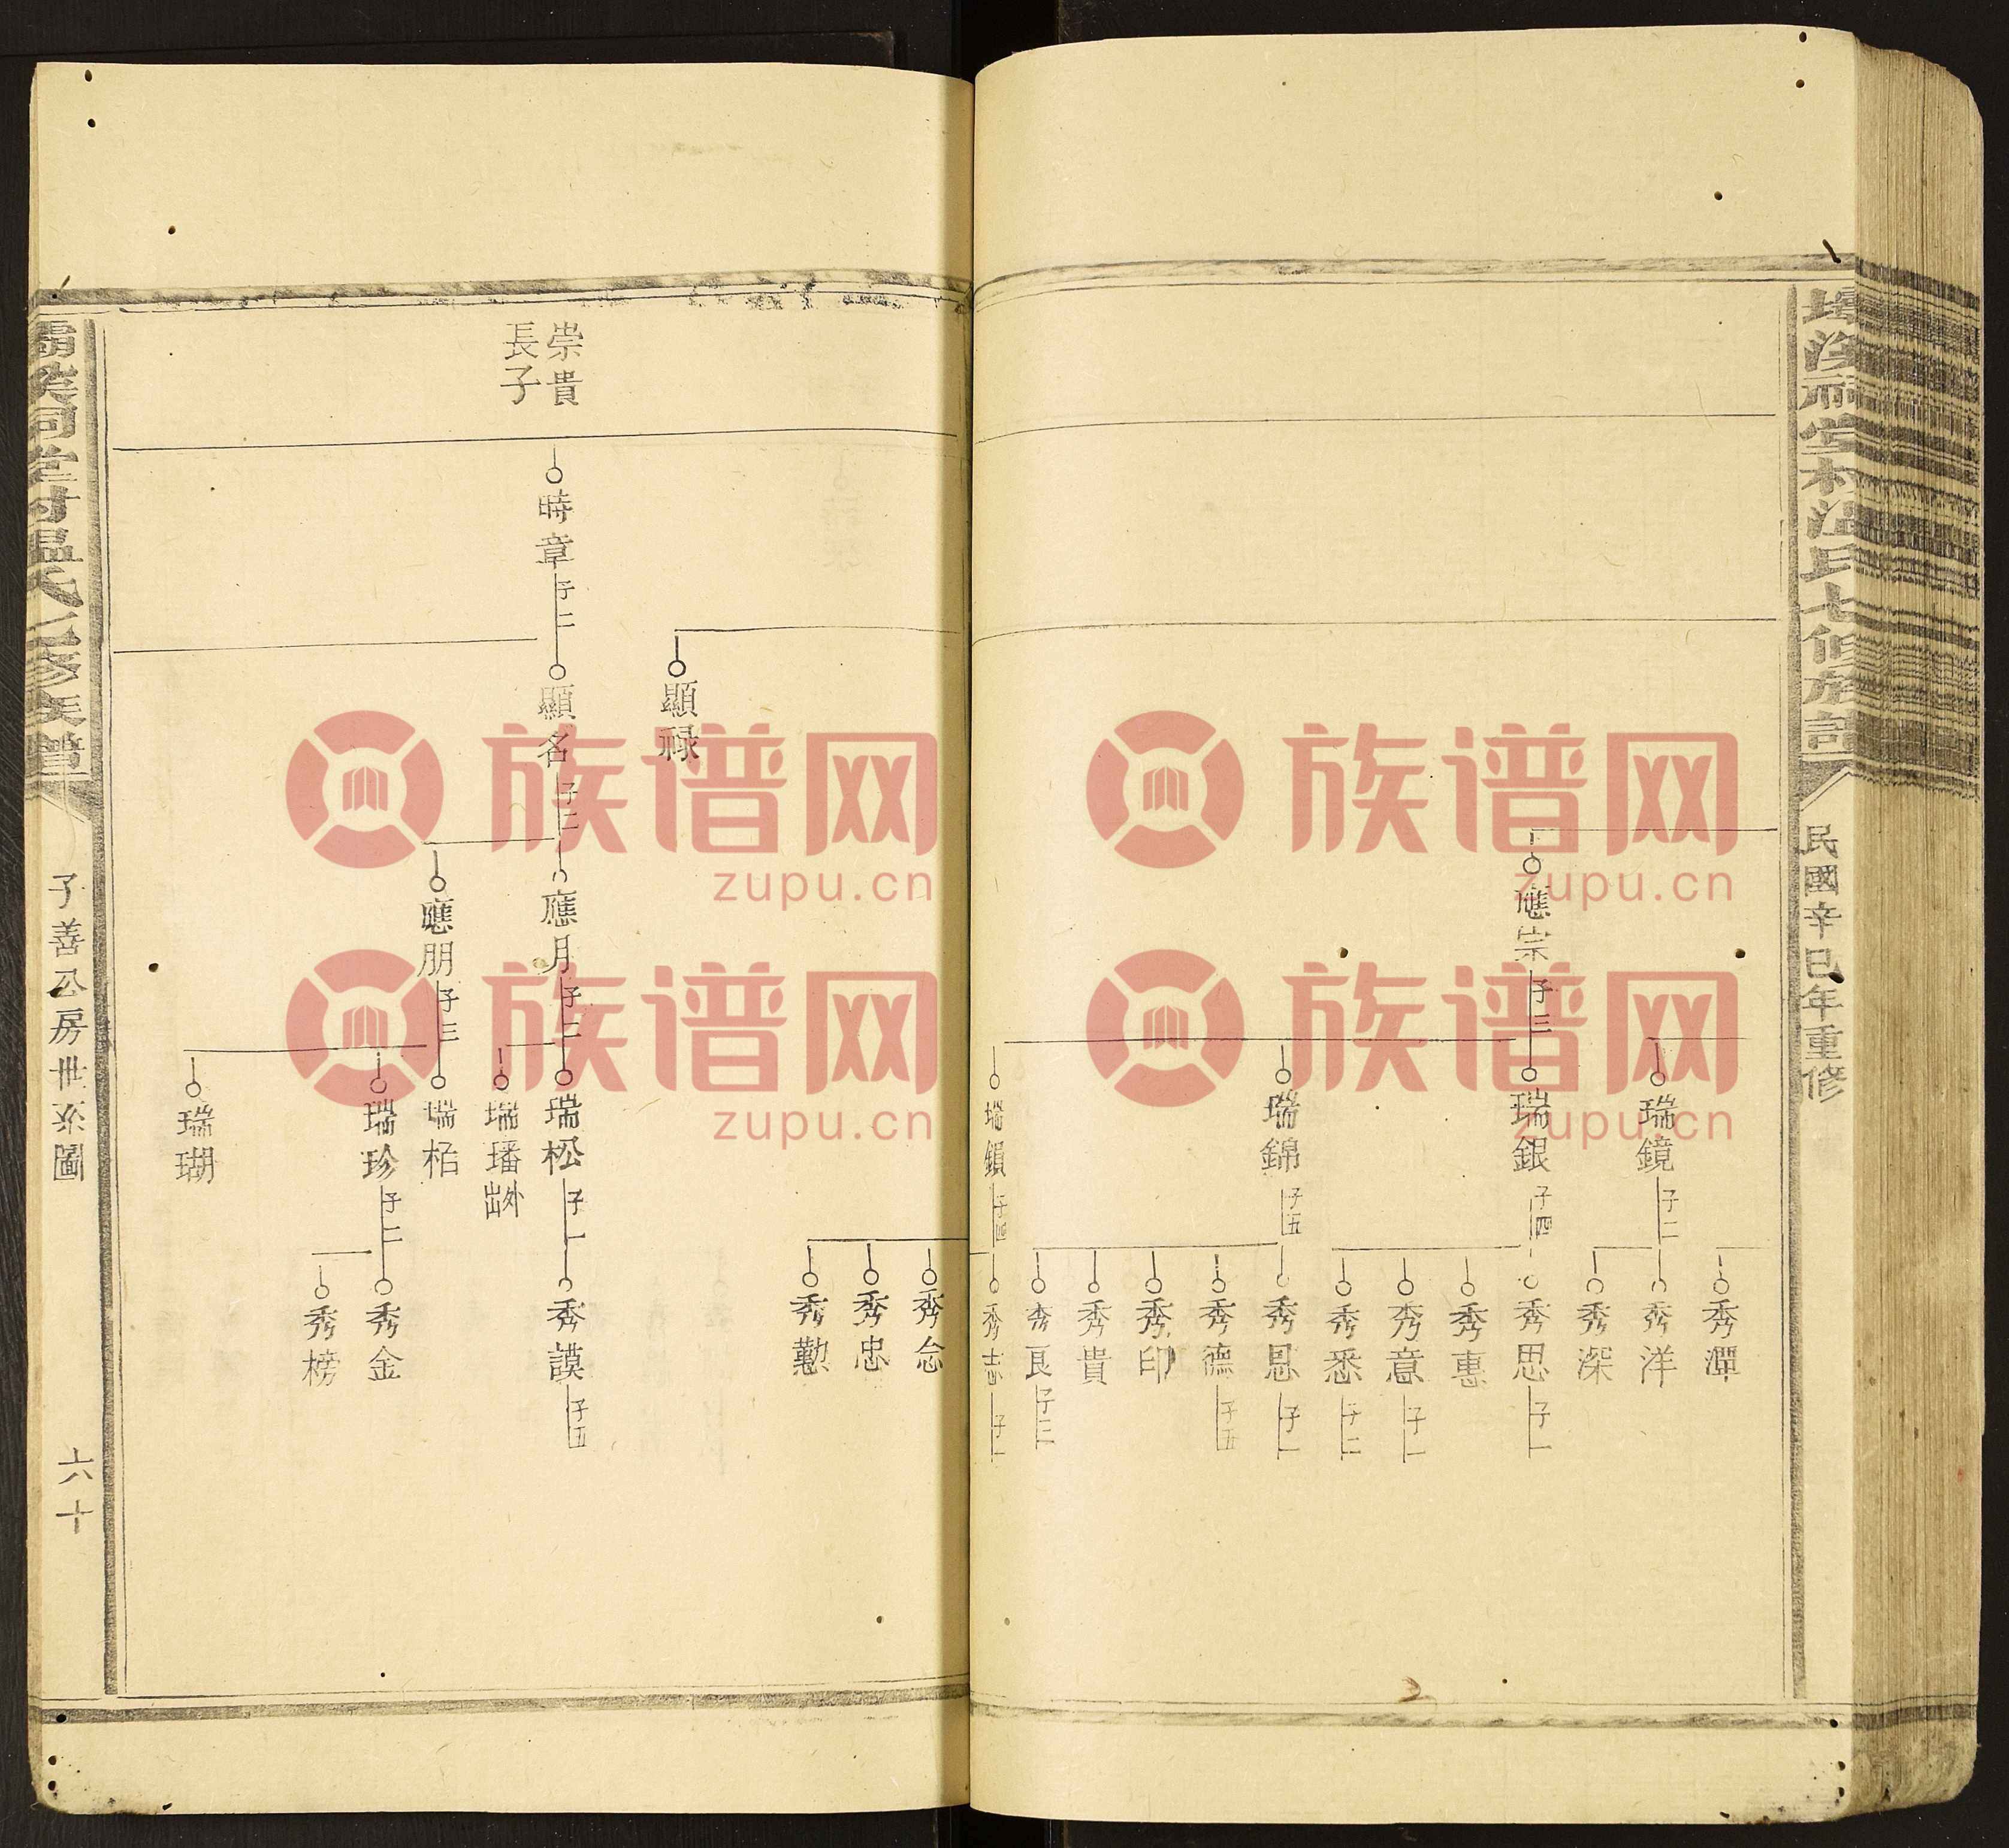 祠堂村溫氏七修族譜
民國辛巳年重修
應宗
子三
瑞鏡
子二
瑞銀
子四
瑞錦
子五
瑞鎖
子四
秀潭
秀洋
秀深
秀思
子一
秀惠
秀意
子一
秀悉
子二
秀恩
子一
秀德
子五
秀印
秀貴
秀良
子三
秀志
子一
秀念
秀忠
秀勤
顯祿
崇貴
長子
時章
子二
顯名
子二
應月
子二
應朋
子三
瑞松
子一
瑞璠
出外
瑞柏
瑞珍
子二
瑞瑚
秀謨
子五
秀金
秀榜
祠堂村溫氏七修族譜
子善公房世系圖
六十
族谱网
zupu.cn
族谱网
zupu.cn
族谱网
zupu.cn
族谱网
zupu.cn